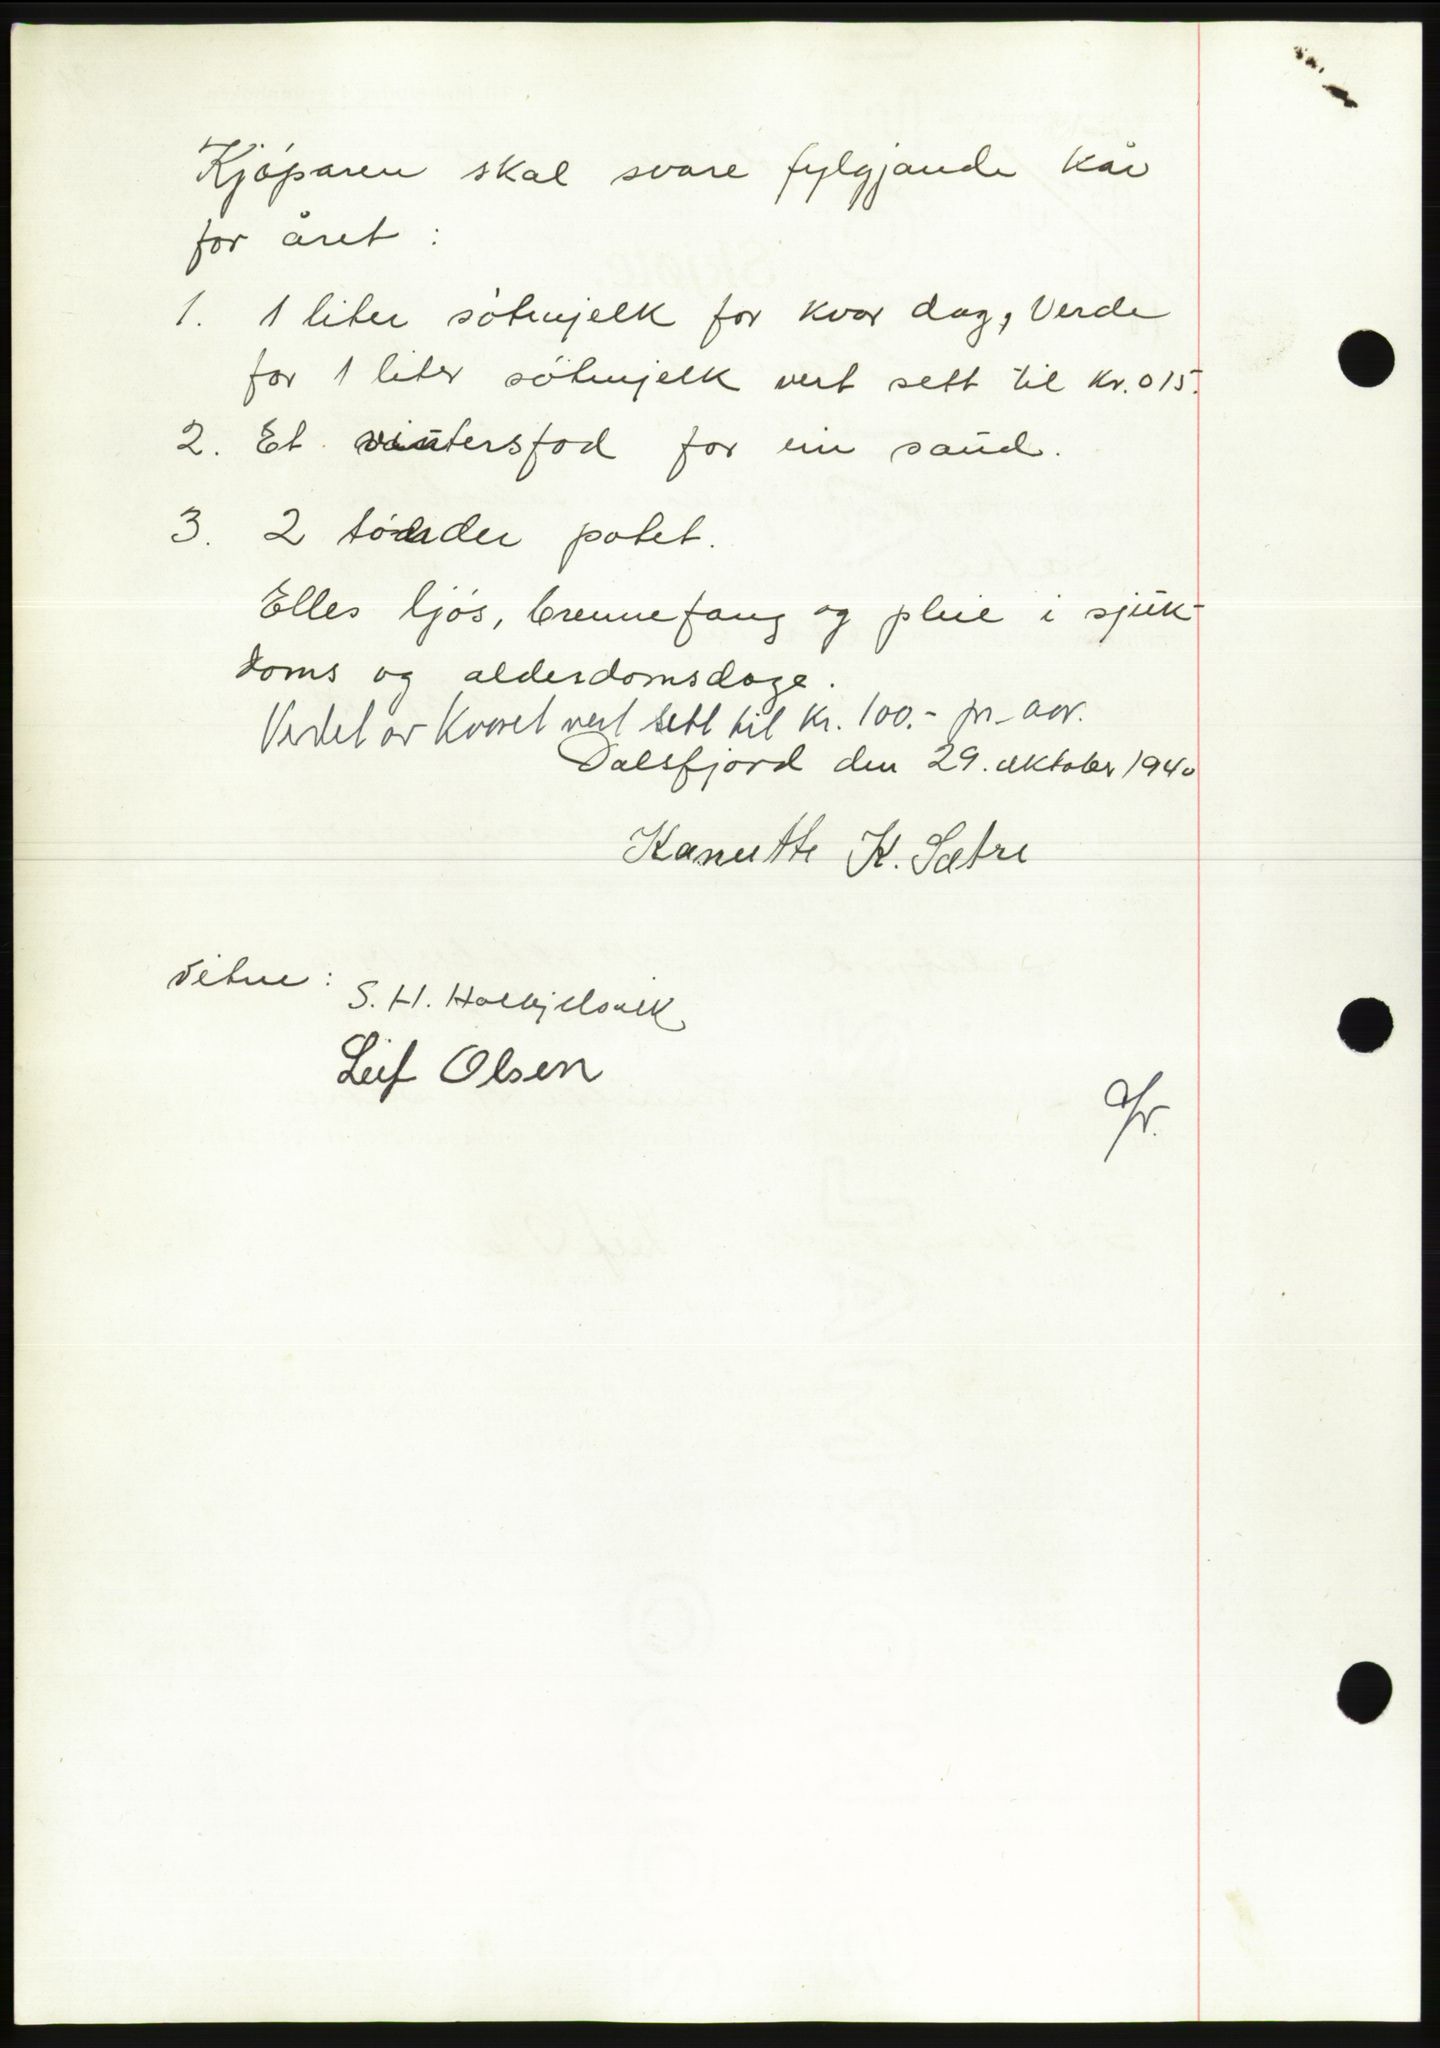 Kjöparen skal svare fylgjande kår
for året :
1. 1 liter sötmjelk for kvar dag, Verde
for 1 liter sötmjelk vert sett til kr. 0 15.
2. Et vintersfod for ein saud.
3. 2 tönder potet.
Elles ljós, brennefang og pleie i sjuk-
doms og alderdomsdage.
Verdet av Kvaret vert sett til kr. 100.- pr. aar.
Dalsfjord den 29. oktober 1940
Kanutte K. Sætre
Vitne :
S. H.
Leif Olsen